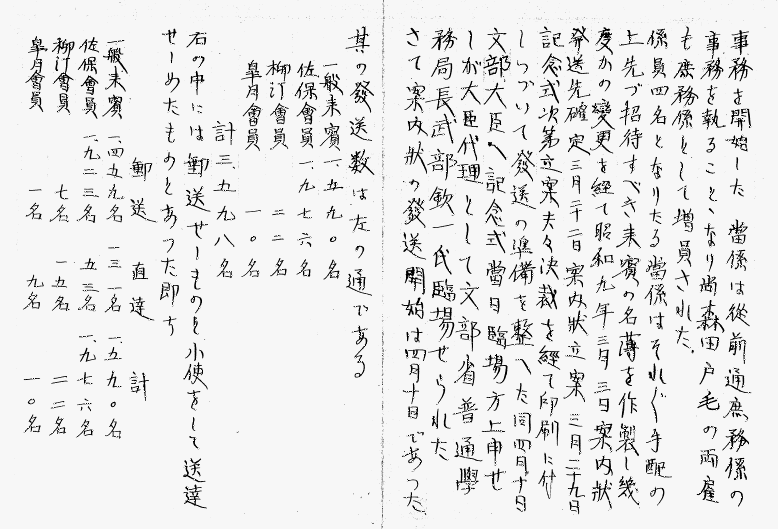 事務を開始した　當係は從前通庶務係の
事務を執ることゝなり尚森田戸毛の両雇
も庶務係として増員された。
係員四名となりたる當係はそれ〴〵手配の
上先づ招待すべき来賓の名薄を作製し幾
度かの變更を経て昭和九年三月三日案内狀
発送先確定三月二十二日案内狀立案　三月二十九日
記念式次第立案夫々決裁を経て印刷に付
しつづいて発送の準備を整へた同四月十日
文部大臣へ記念式當日臨場方上申せ
しが大臣代理として文部省普通學
務局長武部欽一氏臨場せられた
さて案内狀の發送開始は四月十日であつた
其の發送数は左の通である
一般来賓　一、五九〇名
佐保會員　一、九七六名
柳汀會員　二二名
皐月會員　一〇名
計　三、五九八名
右の中には郵送せしものと小使をして送達
せしめたものとあつた即ち
郵送　直達　計
一般来賓　一、四五九名　一三一名　一、五九〇名
佐保會員　一、九二三名　五三名　一、九七六名
柳汀會員　七名　一五名　二二名
皐月會員　一名　九名　一〇名